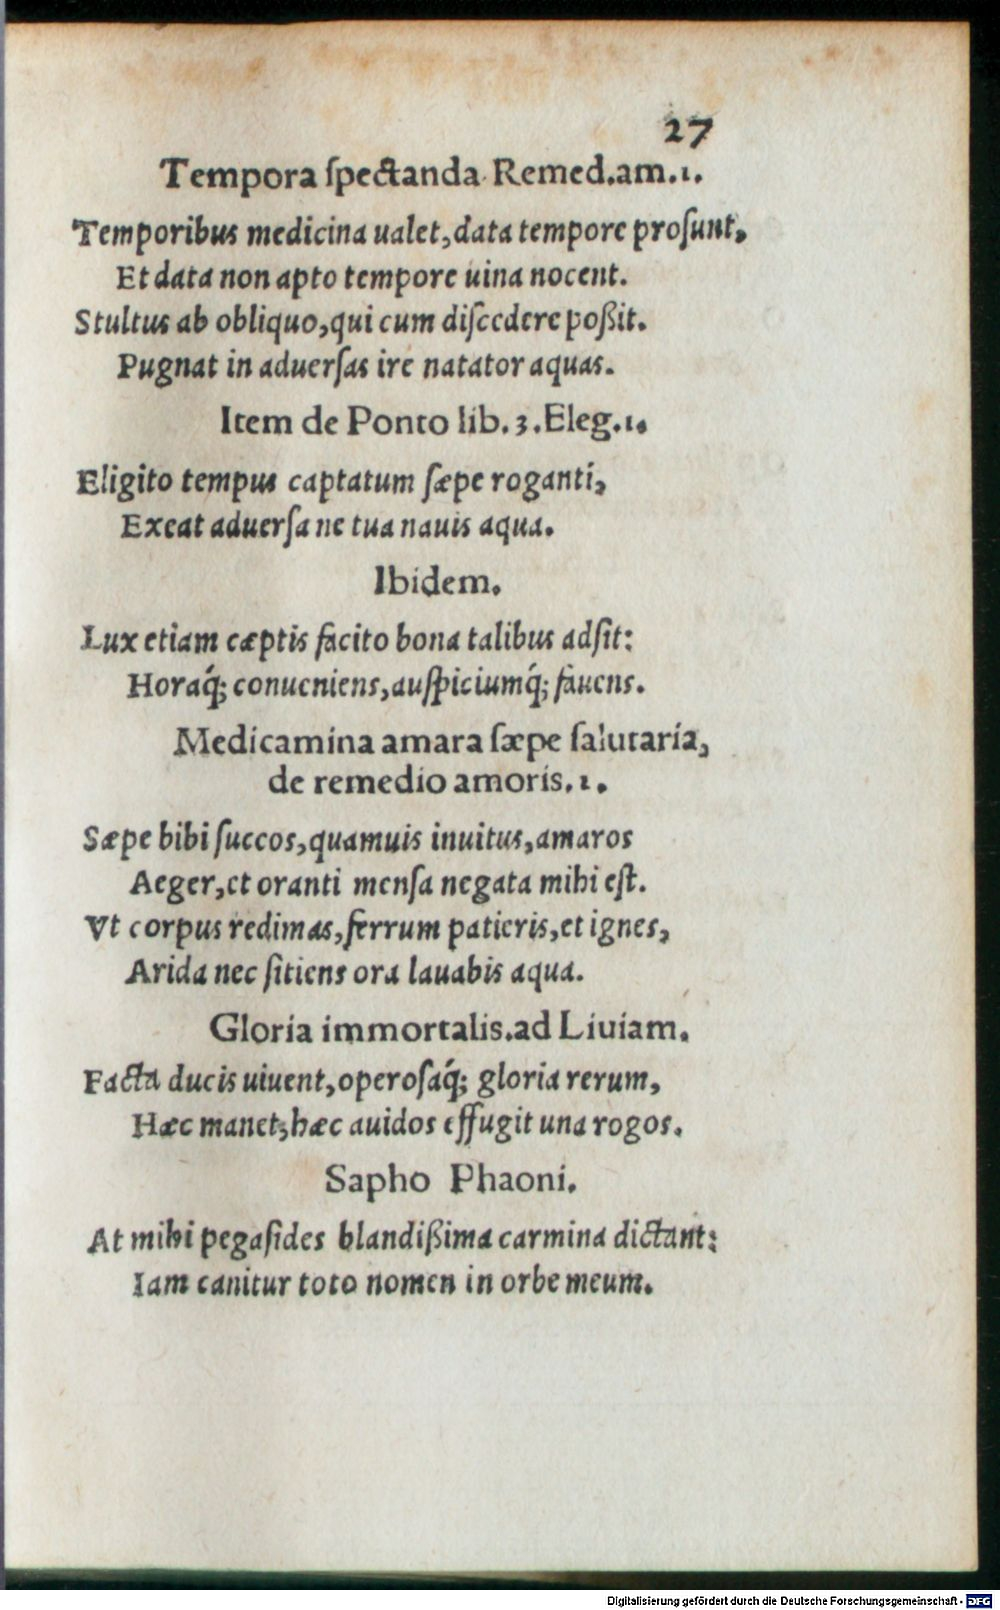 27
Tempora ſpectanda Remed.am.1.
Temporibus medicina ualet,data tempore proſunt,
Et data non apto tempore uina nocent.
Stultus ab obliquo,qui cum diſcedere poßit.
Pugnat in aduerſas ire natator aquas.
Item de Ponto lib.3.Eleg.1.
Eligito tempus captatum ſæpe roganti,
Exeat aduerſa ne tua nauis aqua.
Ibidem.
Lux etiam cæptis facito bona talibus adſit:
Horaq́; conueniens,auſpiciumq́; fauens.
Medicamina amara ſæpe ſalutaria,
de remedio amoris.1.
Sæpe bibi ſuccos,quamuis inuitus,amaros
Aeger,et oranti menſa negata mihi eſt.
Vt corpus redimas,ferrum patieris,et ignes,
Arida nec ſitiens ora lauabis aqua.
Gloria immortalis.ad Liuiam.
Facta ducis uiuent,operoſaq́; gloria rerum,
Hæc manet,hæc auidos effugit una rogos.
Sapho Phaoni.
At mihi pegaſides blandißima carmina dictant:
Iam canitur toto nomen in orbe meum.
Digitalisierung gefördert durch die Deutsche Forschungsgemeinschaft - DFG